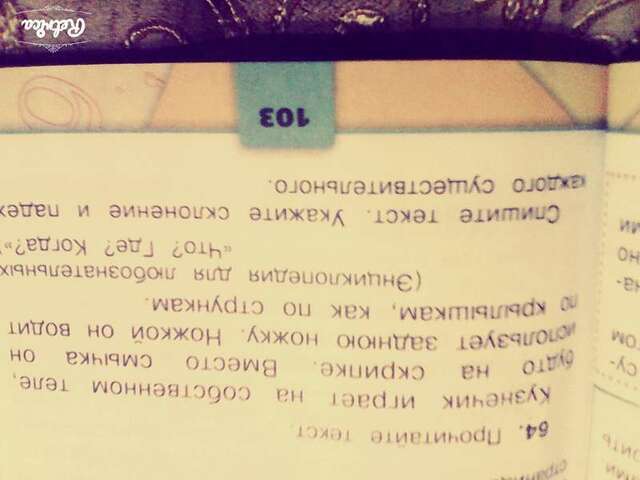 64. Прочитайте текст.
Кузнечик играет на собственном теле,
будто на скрипке. Вместо смычка он
использует заднюю ножку. Ножкой он водит
по крылышкам, как по стрункам.
(Энциклопедия для любознательных
«Что? Где? Когда?»)
Спишите текст. Укажите склонение и падеж
каждого существительного.
103
Retrica